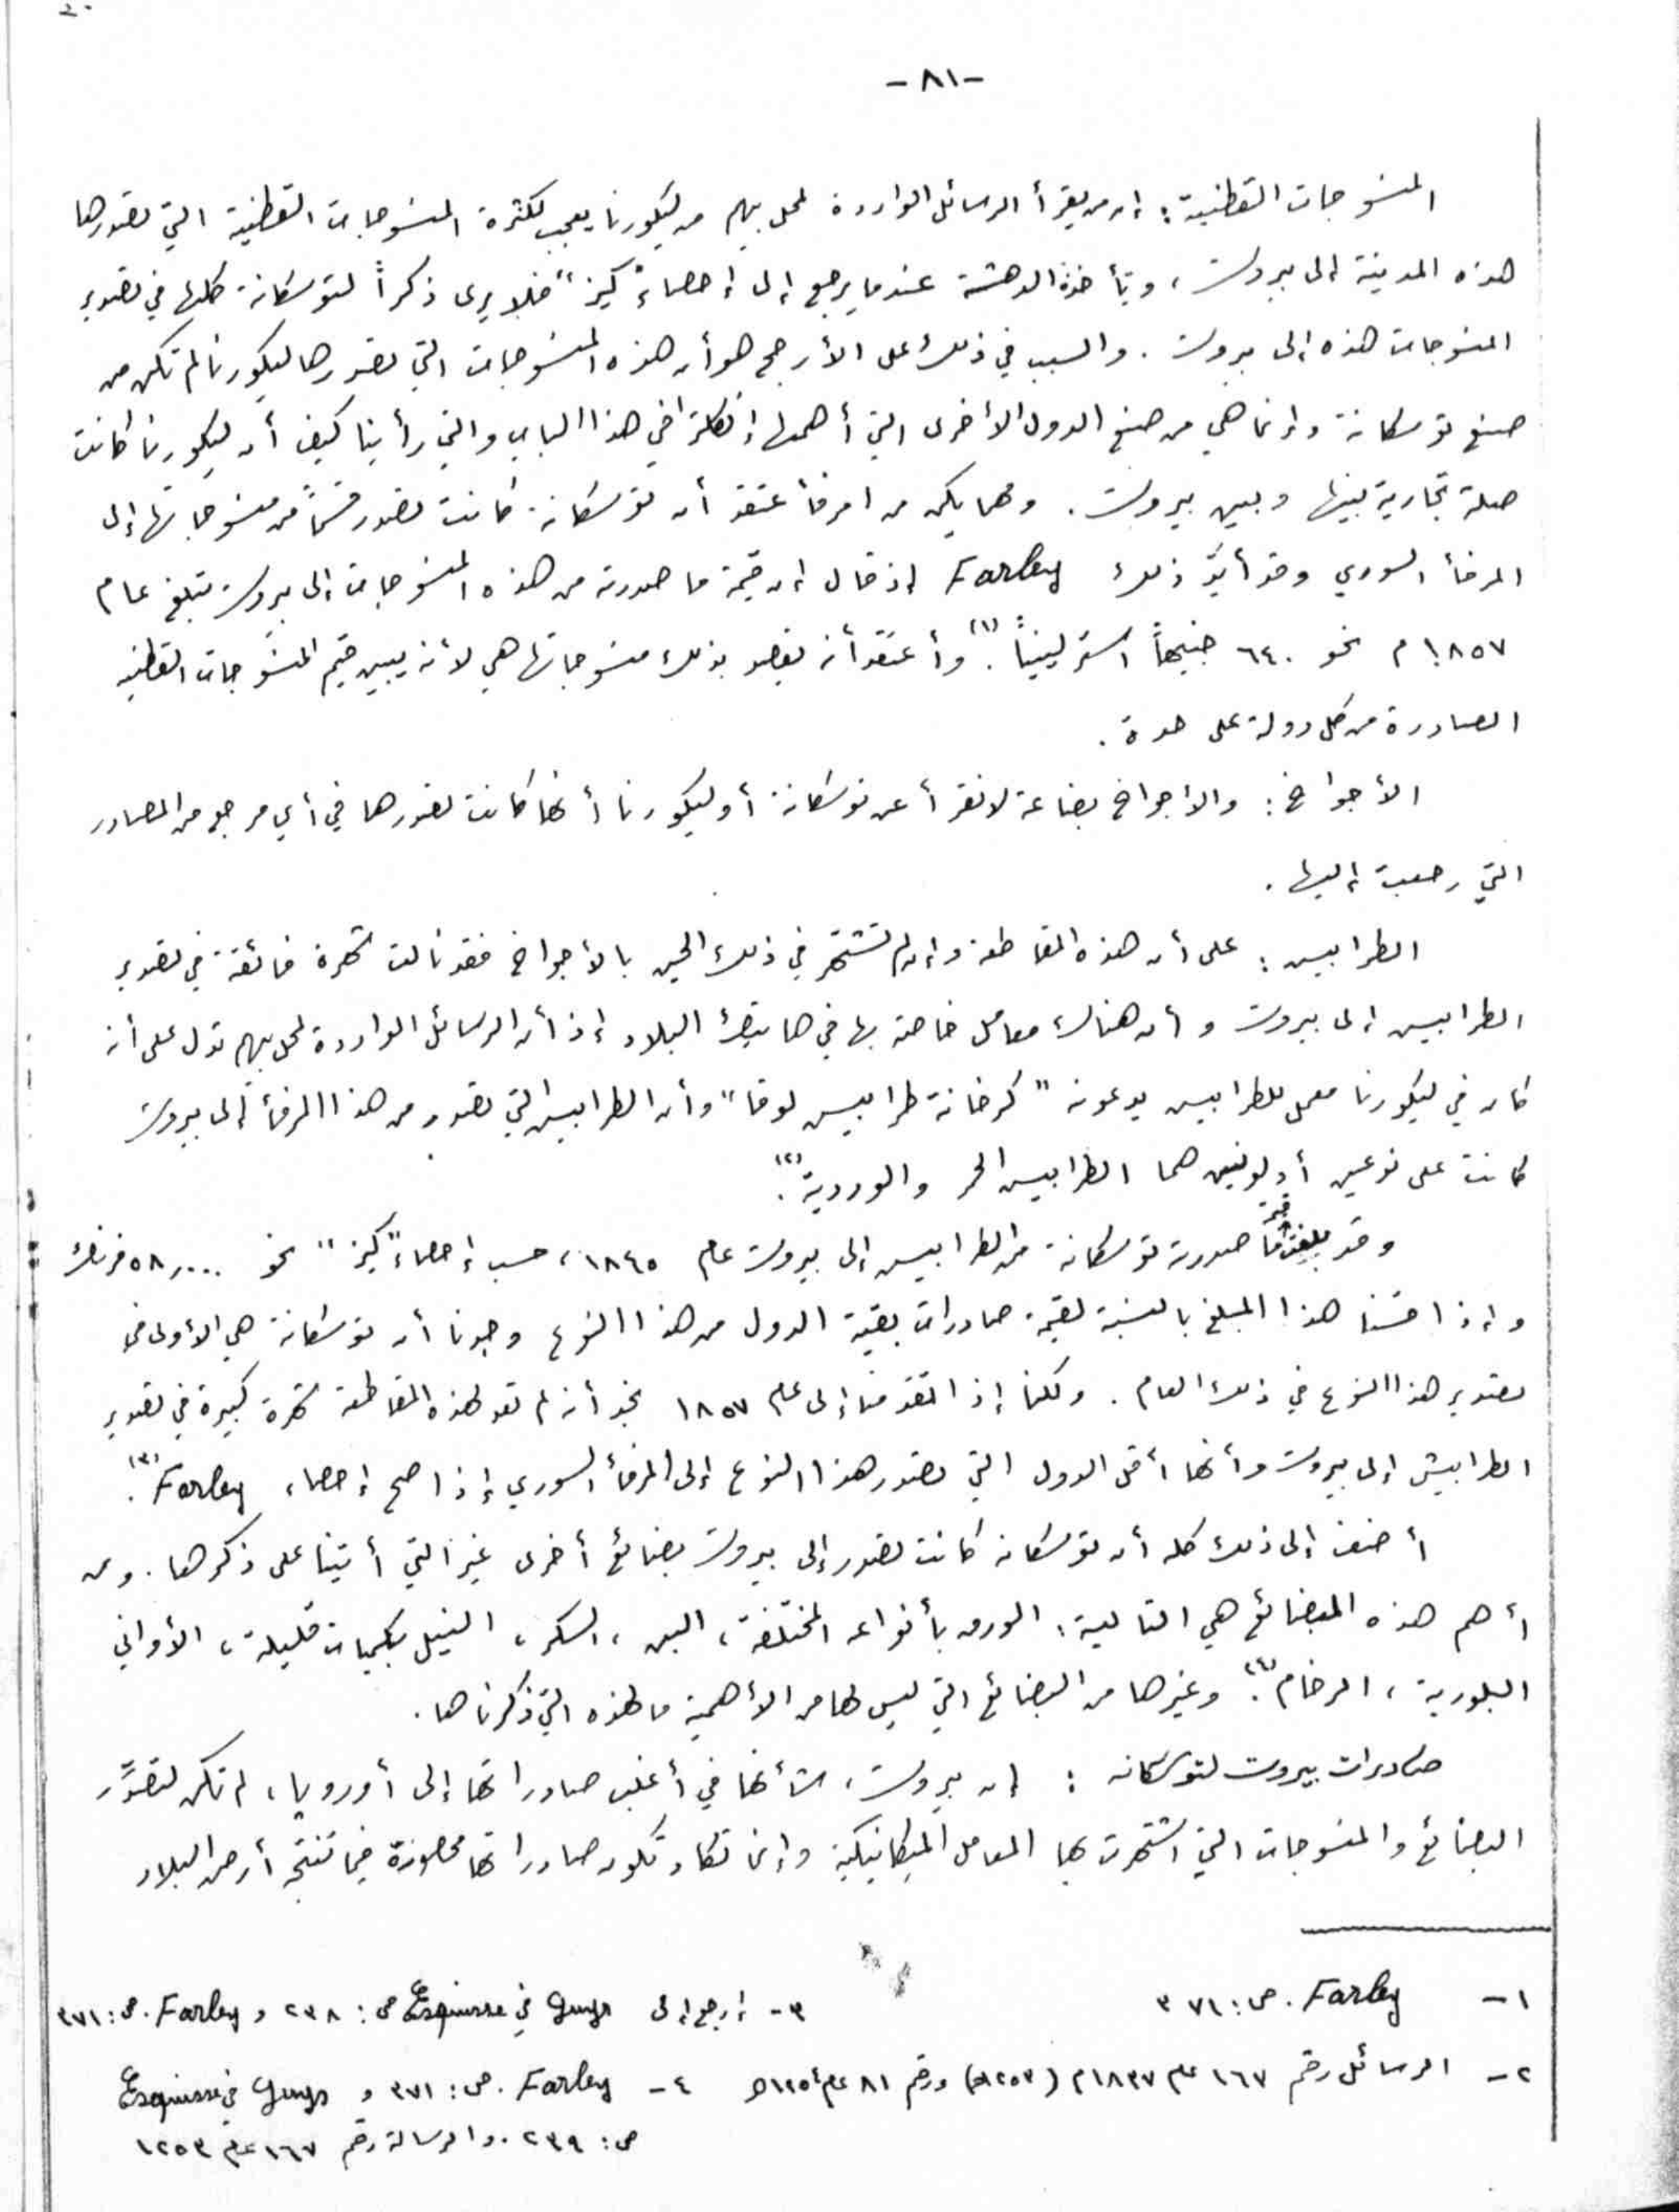 -٨١-
المنسوجات القطنية : إن من يقرأ الرسائل الواردة لمحل بيهم من ليكورنا يعجب لكثرة المنسوجات القطنية التي تصدرها
هذه المدينة إلى بيروت ، وتأخذه الدهشة عندما يرجع إلى إحصاء "كيز" فلا يرى ذكراً لتوسكانة كلها في تصدير
المنسوجات هذه إلى بيروت . والسبب في ذلك على الأرجح هو أن هذه المنسوجات التي تصدرها ليكورنا لم تكن من
صنع توسكانة وإنما هي من صنع الدول الأخرى التي أهمها إنكلترا في هذا الباب والتي رأينا كيف أن ليكورنا كانت
صلة تجارية بينها وبين بيروت . ومهما يكن من امر فأعتقد أن توسكانة كانت تصدر قسماً من منسوجاتها إلى
المرفأ السوري وقد أيّد ذلك Farley إذ قال إن قيمة ما صدرته من هذه المنسوجات إلى بيروت تبلغ عام
١٨٥٧م نحو ٦٤٠ جنيهاً استرلينياً (١). وأعتقد أنه يقصد بذلك منسوجاتها هي لأنه يبين قيم المنسوجات القطنيه
الصادرة من كل دولة على حدة .
الأجواخ : والاجواخ بضاعة لا نقرأ عن توسكانة أو ليكورنا أنها كانت تصدرها في أي مرجع من المصادر
التي رجعت إليها .
الطرابيس : على أن هذه المقاطعة وإن لم تشتهر في ذلك الحين بالأجواخ فقد نالت شهرة فائقة في تصدير
الطرابيس إلى بيروت وأن هناك معامل خاصة بها في هاتيك البلاد إذ أن الرسائل الواردة لمحل بيهم تدل على أنه
كان في ليكورنا معمل للطرابيس يدعونه "كرخانة طرابيس لوقا" وأن الطرابيس التي تصدر من هذا المرفأ إلى بيروت
كانت على نوعين أو لونين هما الطرابيس الحمر والوردية (٢).
وقد بلغت قيمة ما صدرته توسكانة من الطرابيس إلى بيروت عام ١٨٤٥ ، حسب إحصاء "كيز" نحو ٥٨,٠٠٠ فرنك
وإذا قسنا هذا المبلغ بالنسبة لقيمة صادرات بقية الدول من هذا النوع وجدنا أن توسكانة هي الأولى في
تصدير هذا النوع في ذلك العام . ولكننا إذا تقدمنا إلى عام ١٨٥٧ نجد أنه لم تعد لهذه المقاطعة شهرة كبيرة في تصدير
الطرابيش إلى بيروت وأنها أقل الدول التي تصدر هذا النوع إلى المرفأ السوري إذا صح إحصاء Farley (٣).
أضف إلى ذلك كله أن توسكانه كانت تصدر إلى بيروت بضائع أخرى غير التي أتينا على ذكرها . ومن
أهم هذه البضائع هي التالية : الورق بأنواعه المختلفة ، البن ، السكر ، النيل بكميات قليلة ، الأواني
البلورية ، الرخام (٤). وغيرها من البضائع التي ليس لها من الأهمية ما لهذه التي ذكرناها .
صادرات بيروت لتوسكانه : إن بيروت ، شأنها في أغلب صادراتها إلى أوروپا ، لم تكن لتصدِّر
البضائع والمنسوجات التي اشتهرت بها المعامل الميكانيكية وإنما تكاد تكون صادراتها محصورة فيما تنتجه أرض البلاد
١- Farley . ص: ٣٧١
٢- الرسائل رقم ١٦٧ عام ١٨٣٧م (١٢٥٣هـ) ورقم ٨١ عام ١٢٥٤هـ
٣- إرجع إلى Guys في Esquisse ص: ٢٣٨ و Farley . ص: ٣٧١
٤- Farley . ص: ٣٧١ و Guys في Esquisse
ص: ٢٣٩ . والرسالة رقم ١٦٧ عام ١٢٥٣